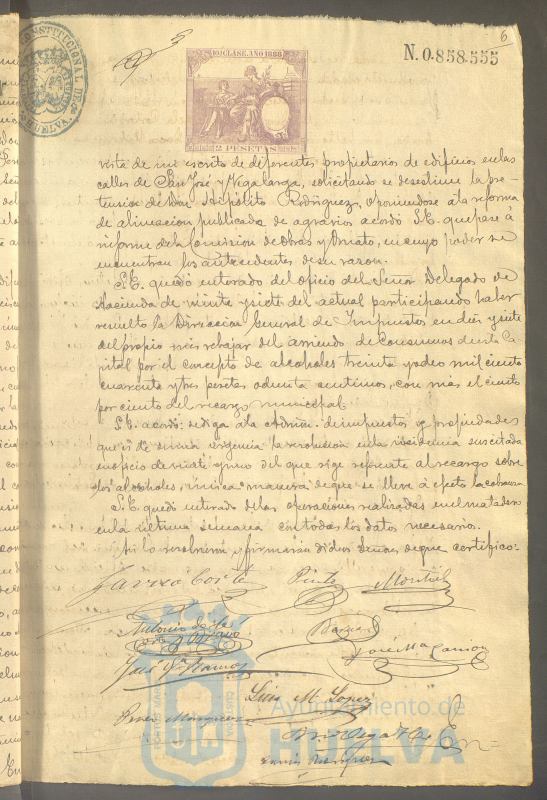 6
N. 0.858.555
CONSTITUCIONAL DE
HUELVA
10ª CLASE. AÑO 1888
2 PESETAS
vista de un escrito de diferentes propietarios de edificios en las
calles de San José y Vega larga, solicitando se desestime la pre-
tension de Don Hipólito Rodriguez, oponiendose á la reforma
de alineacion publicada de agravios acordó S.E. que pase á
informe de la Comision de Obras y Ornato, en cuyo poder se
encuentran los antecedentes de su razon.
S.E. quedó enterado del oficio del Señor Delegado de
Hacienda de veinte y siete del actual participando haber
resuelto la Direccion General de Impuestos en diez y siete
del propio mes rebajar del arriendo de Consumos de esta Ca-
pital por el concepto de alcoholes treinta y ocho mil ciento
cuarenta y tres pesetas ochenta centimos, con más el ciento
por ciento del recargo municipal.
S.E. acordó se diga á la Admon. de impuestos y propiedades
que es de suma urgencia la resolucion en la incidencia suscitada
en oficio de veinte y uno del que rige referente al recargo sobre
los alcoholes, unica manera de que se lleve á efecto la cobranza
S.E. quedó enterado de las operaciones realizadas en el matadero
en la última semana con todos los datos necesarios.
Asi lo resolvieron y firmarán dichos Señores de que certifico:
Garrido
Pinto
Montiel
Antonio de la
José Mª Ramos
José Mª
Luis M. Lopez
Pedro
Ayuntamiento de
HUELVA